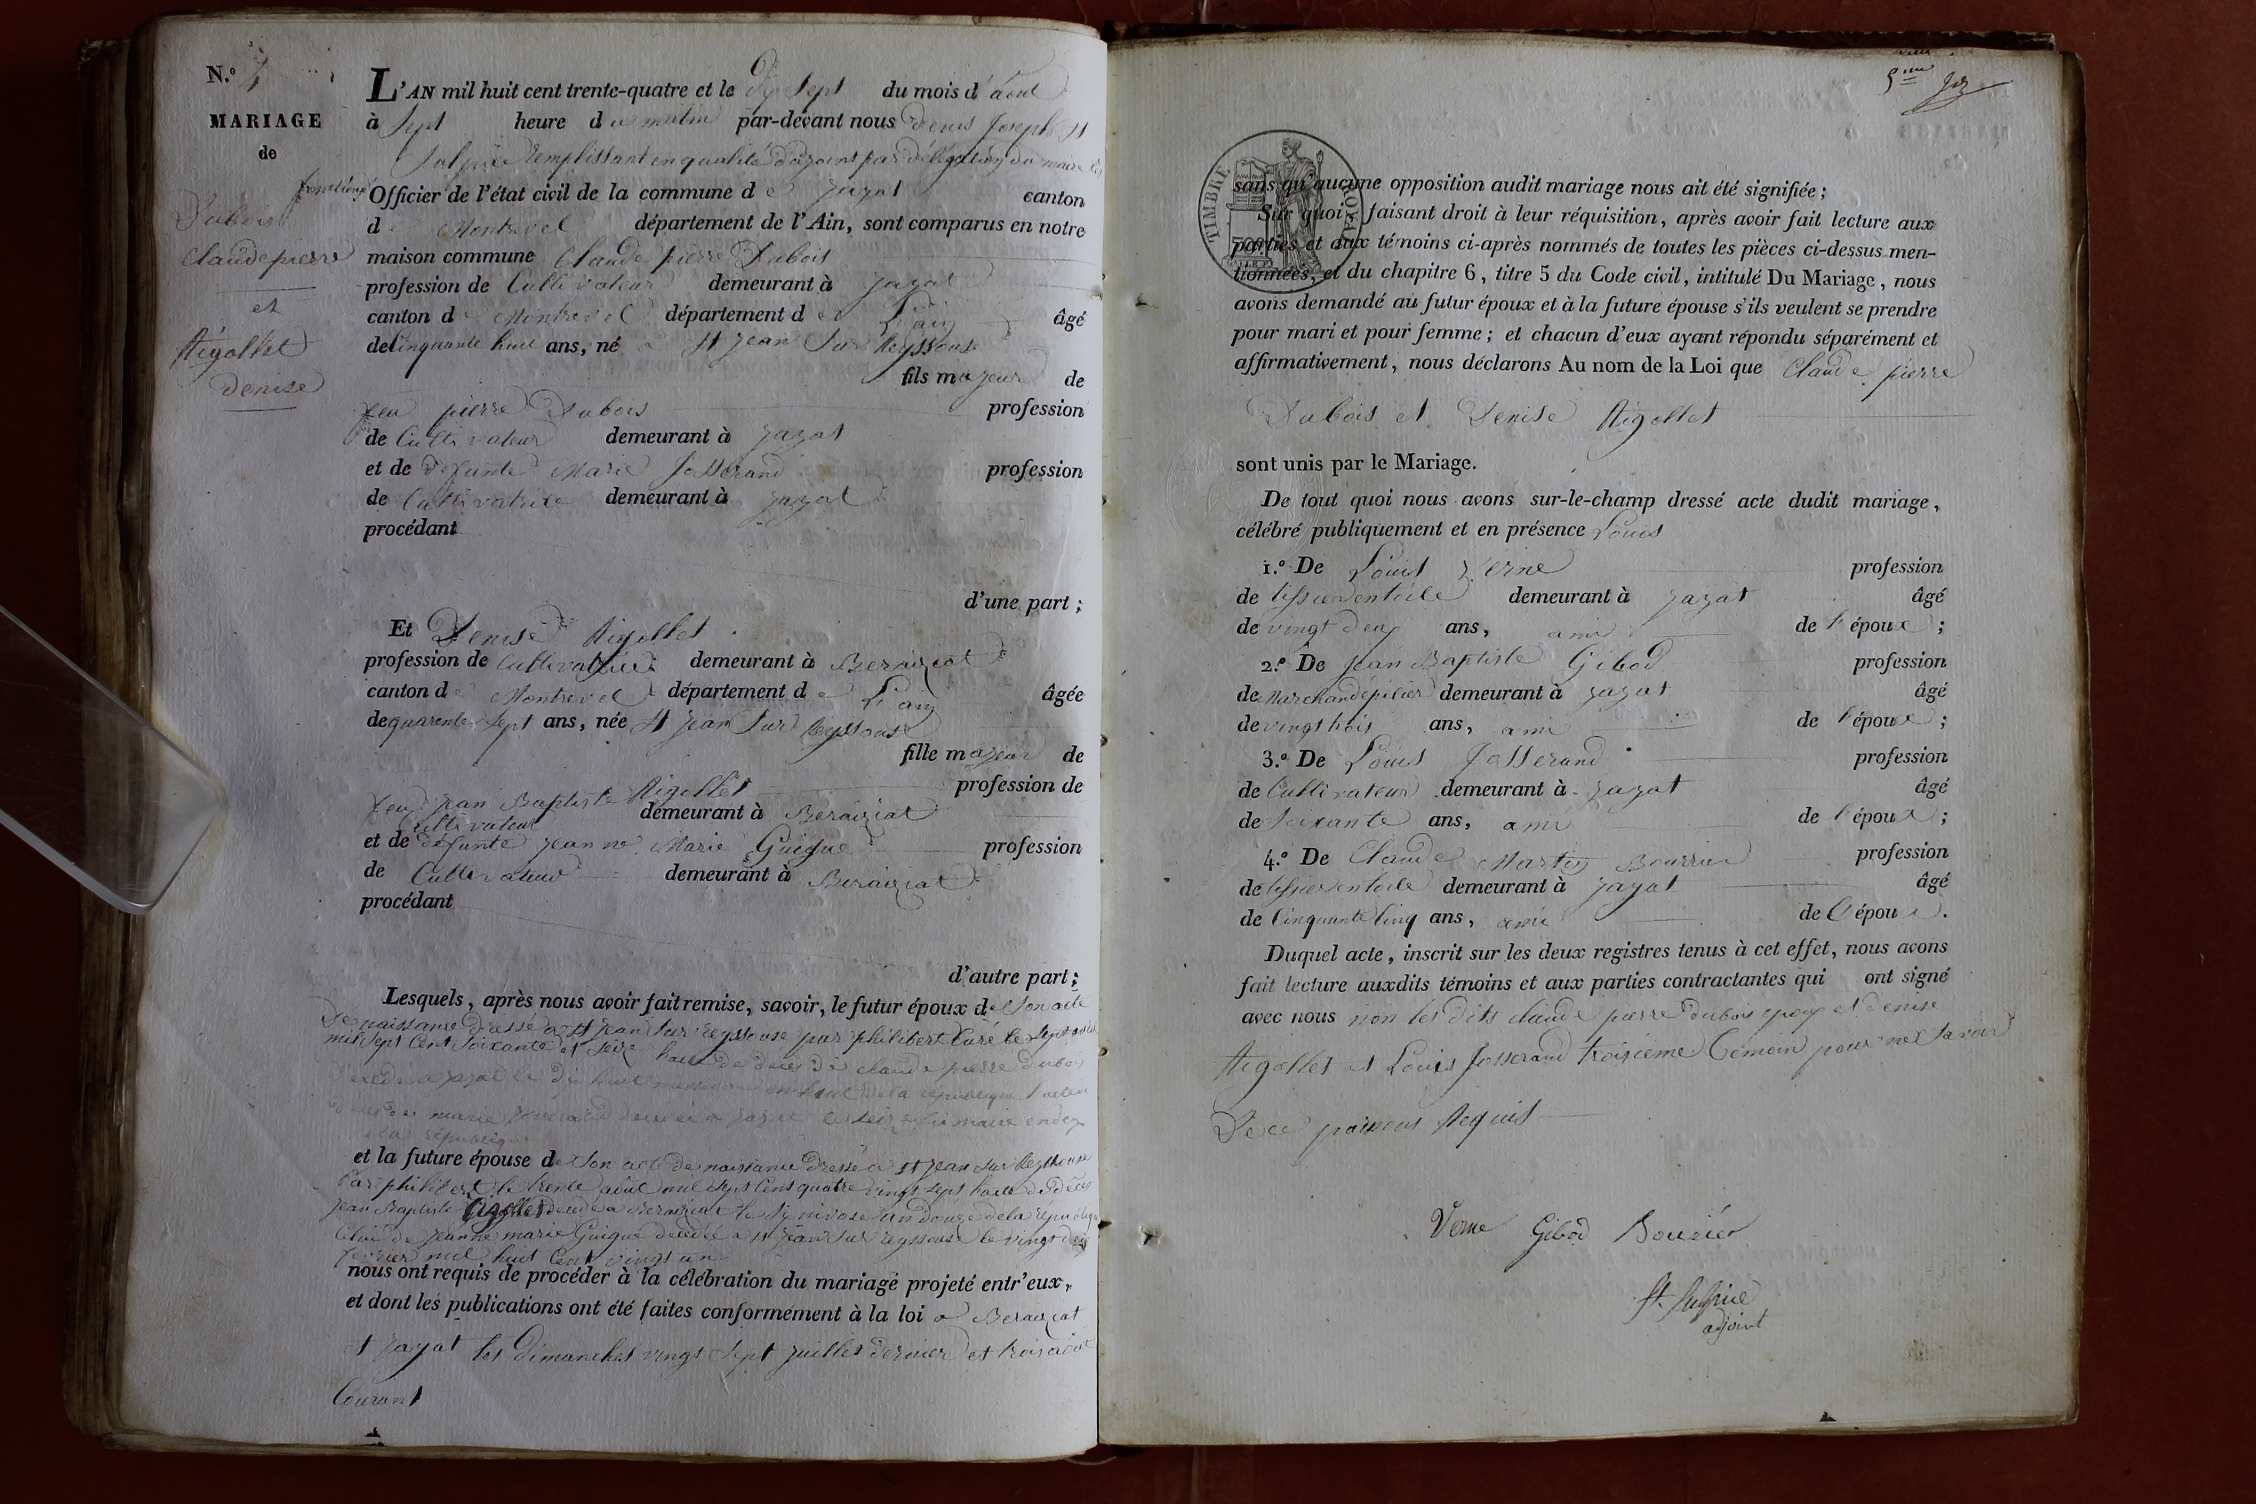 N.º
MARIAGE
de
Dubois
Claude pierre
et
Rigollet
denise
L'AN mil huit cent trente-quatre et le dix Sept du mois d'août
à Sept heure du matin par-devant nous Denis Joseph St
Sulpice Remplissant en qualité d'adjoint par délégation du maire les
fonctions
Officier de l'état civil de la commune de jayat canton
de Montrevel département de l'Ain, sont comparus en notre
maison commune Claude pierre Dubois
profession de Cultivateur demeurant à jayat
canton de Montrevel département de L'ain âgé
de Cinquante huit ans, né à St jean Sur Reyssouse
fils majeur de
feu pierre Dubois profession
de Cultivateur demeurant à jayat
et de defunte Marie Josserand profession
de Cultivatrice demeurant à jayat
procédant
d'une part ;
Et Denise Rigollet
profession de Cultivatrice demeurant à Beraiziat
canton de Montrevel département de L'ain âgée
de quarente Sept ans, née St jean Sur Reyssouse
fille majeur de
feu jean Baptiste Rigollet profession de
Cultivateur demeurant à Beraiziat
et de défunte jeanne Marie Guigue profession
de Cultivateur demeurant à Beraiziat
procédant
d'autre part ;
Lesquels, après nous avoir fait remise, savoir, le futur époux de Son acte
De naissance dressé à St jean Sur reyssouse par philibert Curé le Sept
mil Sept Cent Soixante et Seize lacte de deces de claude pierre dubois
décédé a jayat le dix huit an huit de la république lacte
de deces de marie josserand décédée a jayat le Seize frimaire an dix
de la république
et la future épouse de Son acte de naissance dressé a St jean Sur Reyssouse
Par philibert le trente août mil Sept Cent quatre vingt Sept lacte de décès
jean Baptiste Rigollet décédé a Beraiziat le nivose an douze de la république
Celui de jeanne marie Guigue décédée a St jean Sur reyssouse le vingt deux
fevrier mil huit Cent vingt un
nous ont requis de procéder à la célébration du mariage projeté entr'eux,
et dont les publications ont été faites conformément à la loi a Beraiziat
et jayat les dimanches vingt Sept juillet dernier et trois août
Courant
5me
TIMBRE ROYAL
sans qu'aucune opposition audit mariage nous ait été signifiée ;
Sur quoi, faisant droit à leur réquisition, après avoir fait lecture aux
parties et aux témoins ci-après nommés de toutes les pièces ci-dessus men-
tionnées, et du chapitre 6, titre 5 du Code civil, intitulé Du Mariage, nous
avons demandé au futur époux et à la future épouse s'ils veulent se prendre
pour mari et pour femme ; et chacun d'eux ayant répondu séparément et
affirmativement, nous déclarons Au nom de la Loi que Claude pierre
Dubois et Denise Rigollet
sont unis par le Mariage.
De tout quoi nous avons sur-le-champ dressé acte dudit mariage,
célébré publiquement et en présence Louis
1.º De Louis Verne profession
de tissier en toile demeurant à jayat âgé
de vingt deux ans, ami de l'époux ;
2.º De jean Baptiste Gibod profession
de Marchand épicier demeurant à jayat âgé
de vingt trois ans, ami de l'époux ;
3.º De Louis Josserand profession
de Cultivateur demeurant à jayat âgé
de Soixante ans, ami de l'époux ;
4.º De Claude Martin Bourrier profession
de tissier en toile demeurant à jayat âgé
de Cinquante Cinq ans, ami de l'époux.
Duquel acte, inscrit sur les deux registres tenus à cet effet, nous avons
fait lecture auxdits témoins et aux parties contractantes qui ont signé
avec nous non les dits claude pierre dubois epoux et denise
Rigollet et Louis Josserand troisieme témoin pour ne Savoir
De ce par nous Requis
Verne Gibod Bourier
St. Sulpice
adjoint